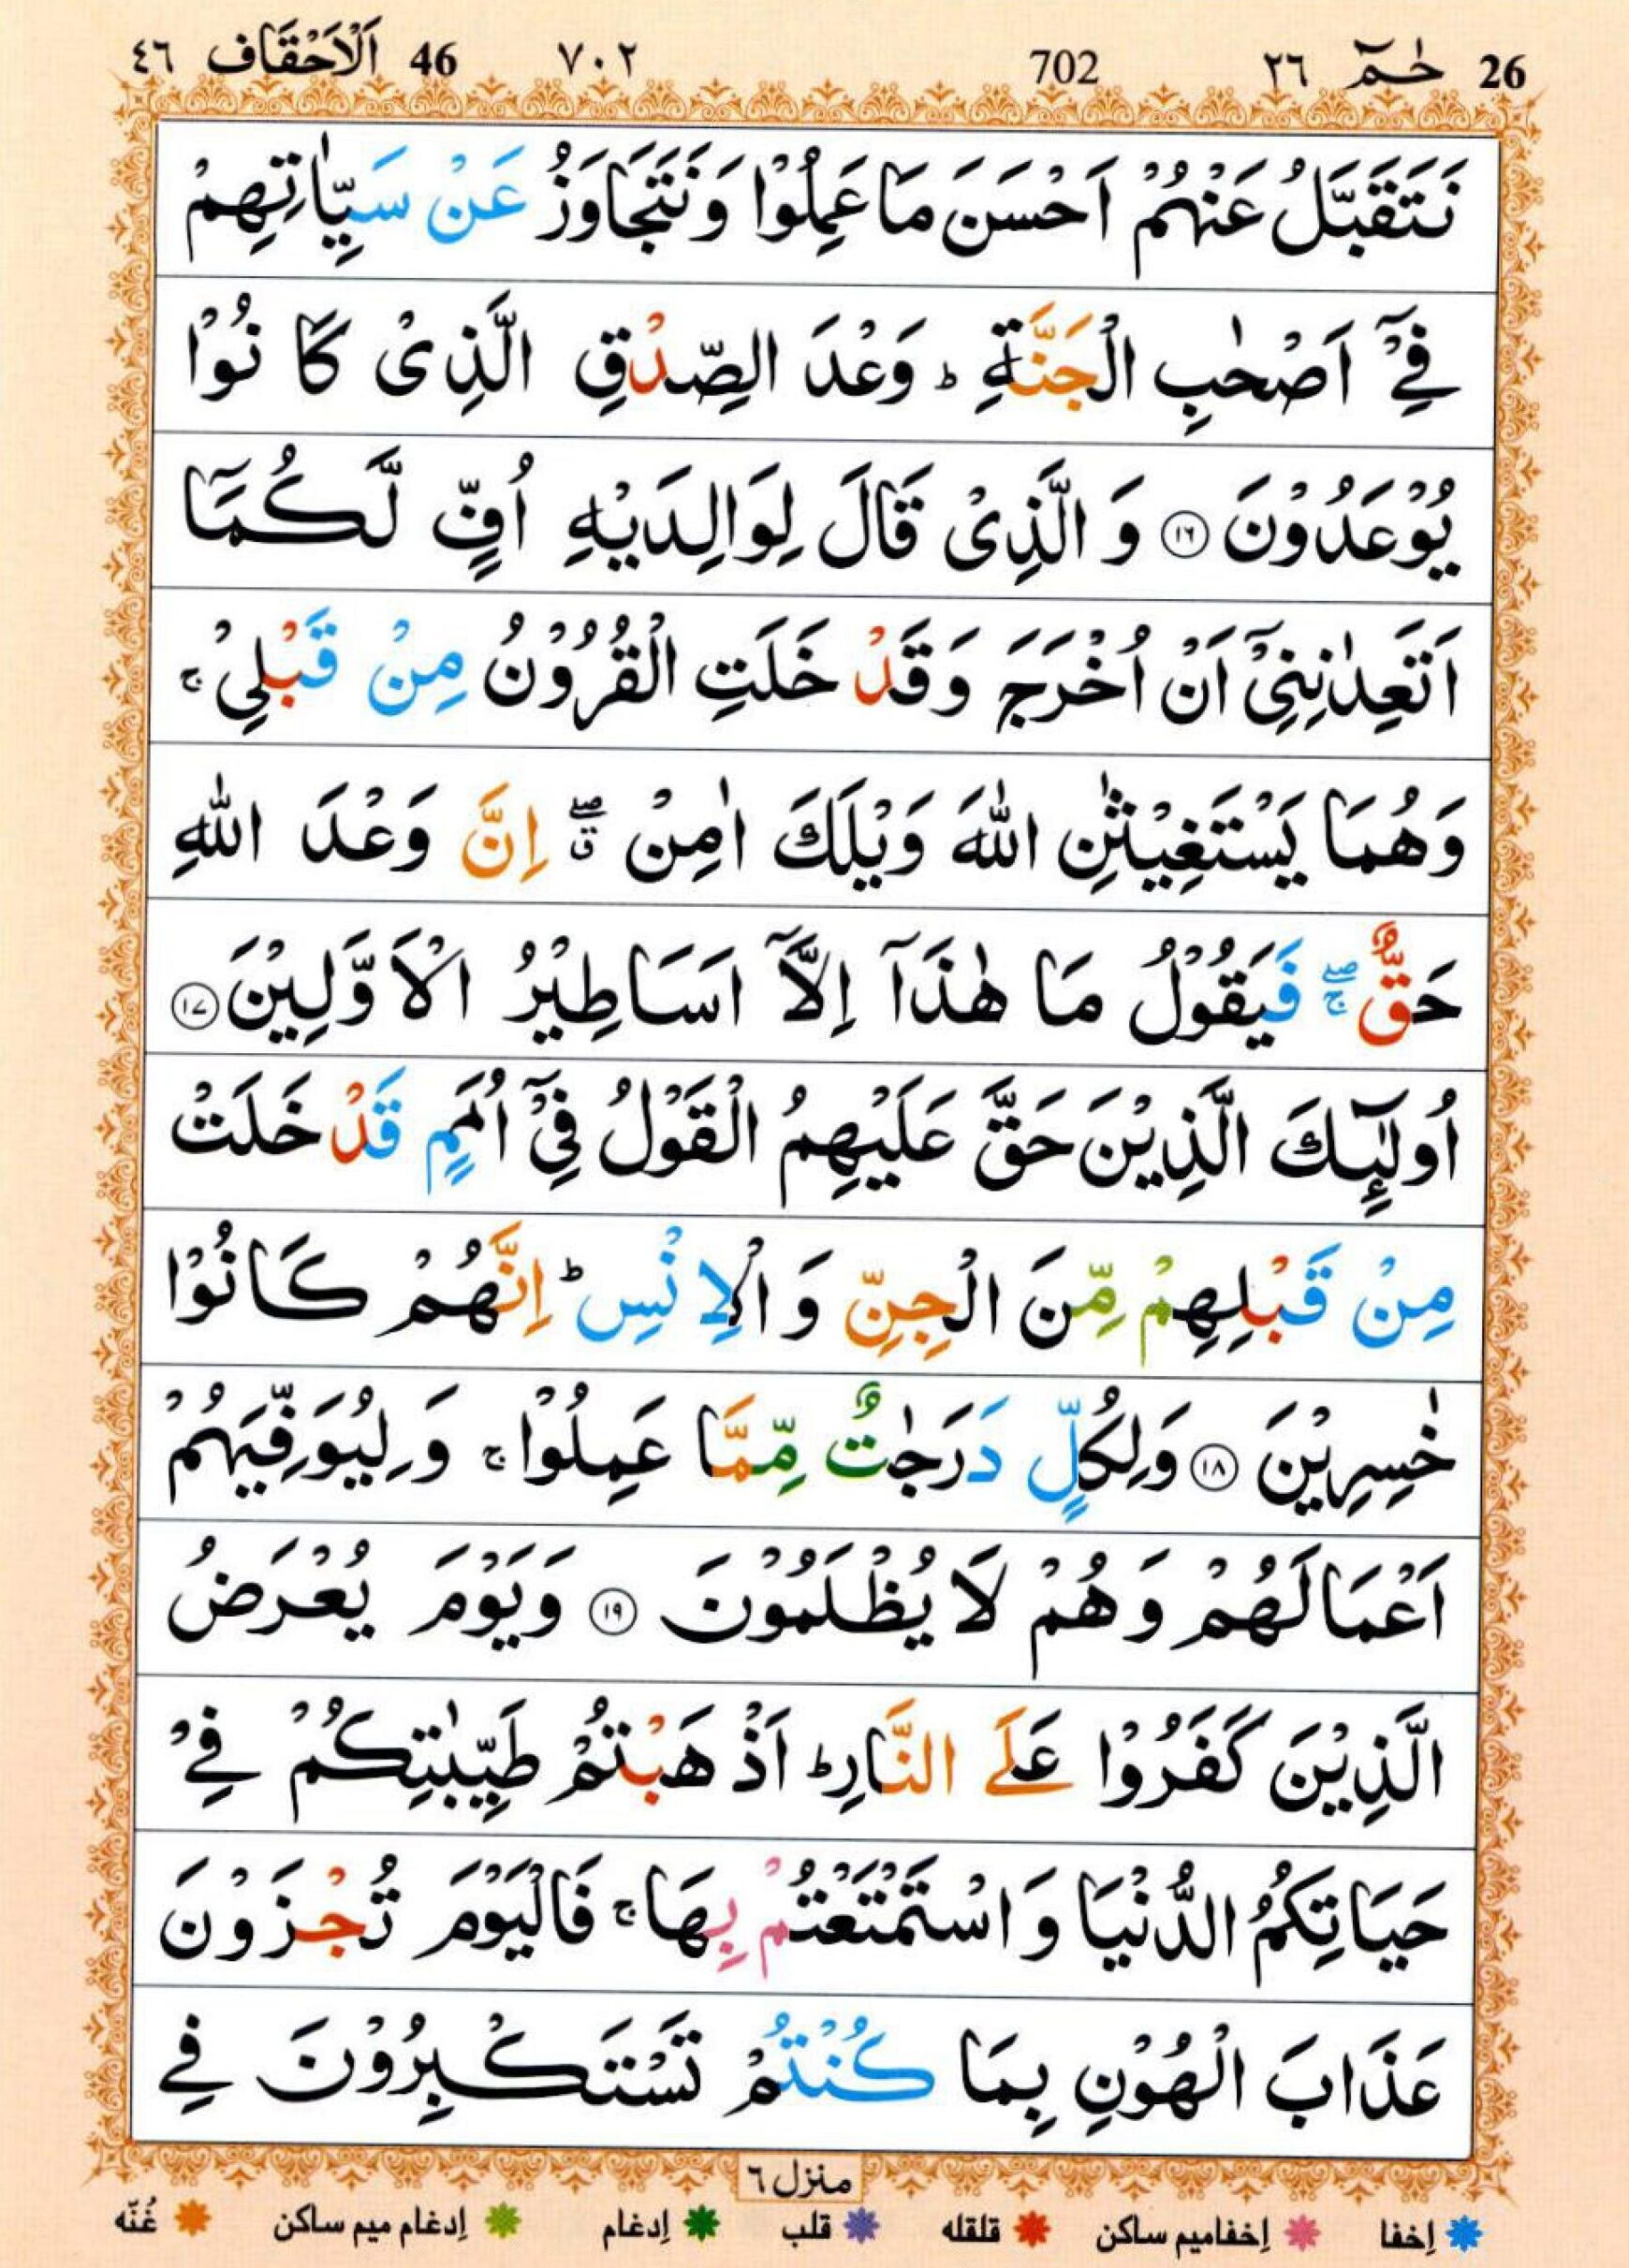 26 حٰمٓ ٢٦ 702 ٧٠٢ 46 اَلْاَحْقَاف ٤٦
نَتَقَبَّلُ عَنْهُمْ اَحْسَنَ مَا عَمِلُوْا وَنَتَجَاوَزُ عَنْ سَيِّاٰتِهِمْ
فِیْۤ اَصْحٰبِ الْجَنَّةِ ؕ وَعْدَ الصِّدْقِ الَّذِیْ كَا نُوْا
يُوْعَدُوْنَ ۝١٦ وَ الَّذِیْ قَالَ لِوَالِدَيْهِ اُفٍّ لَّكُمَاۤ
اَتَعِدٰنِنِیْۤ اَنْ اُخْرَجَ وَقَدْ خَلَتِ الْقُرُوْنُ مِنْ قَبْلِیْ ۚ
وَهُمَا يَسْتَغِيْثٰنِ اللّٰهَ وَيْلَكَ اٰمِنْ ۖق اِنَّ وَعْدَ اللّٰهِ
حَقٌّ ۖۚ فَيَقُوْلُ مَا هٰذَاۤ اِلَّاۤ اَسَاطِيْرُ الْاَوَّلِيْنَ ۝١٧
اُولٰٓئِكَ الَّذِيْنَ حَقَّ عَلَيْهِمُ الْقَوْلُ فِیْۤ اُمَمٍ قَدْ خَلَتْ
مِنْ قَبْلِهِمْ مِّنَ الْجِنِّ وَ الْاِنْسِ ؕ اِنَّهُمْ كَانُوْا
خٰسِرِيْنَ ۝١٨ وَلِكُلٍّ دَرَجٰتٌ مِّمَّا عَمِلُوْا ۚ وَ لِيُوَفِّيَهُمْ
اَعْمَالَهُمْ وَهُمْ لَا يُظْلَمُوْنَ ۝١٩ وَيَوْمَ يُعْرَضُ
الَّذِيْنَ كَفَرُوْا عَلَی النَّارِ ؕ اَذْ هَبْتُمْ طَيِّبٰتِكُمْ فِیْ
حَيَاتِكُمُ الدُّنْيَا وَ اسْتَمْتَعْتُمْ بِهَا ۚ فَالْيَوْمَ تُجْزَوْنَ
عَذَابَ الْهُوْنِ بِمَا كُنْتُمْ تَسْتَكْبِرُوْنَ فِی
منزل ٦
إخفا إخفاميم ساكن قلقله قلب إدغام إدغام ميم ساكن غُنّه